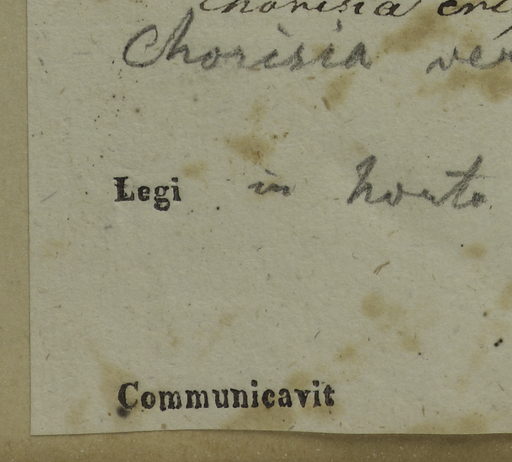 Chorisia
Chorisia
Legi in horto
Communicavit